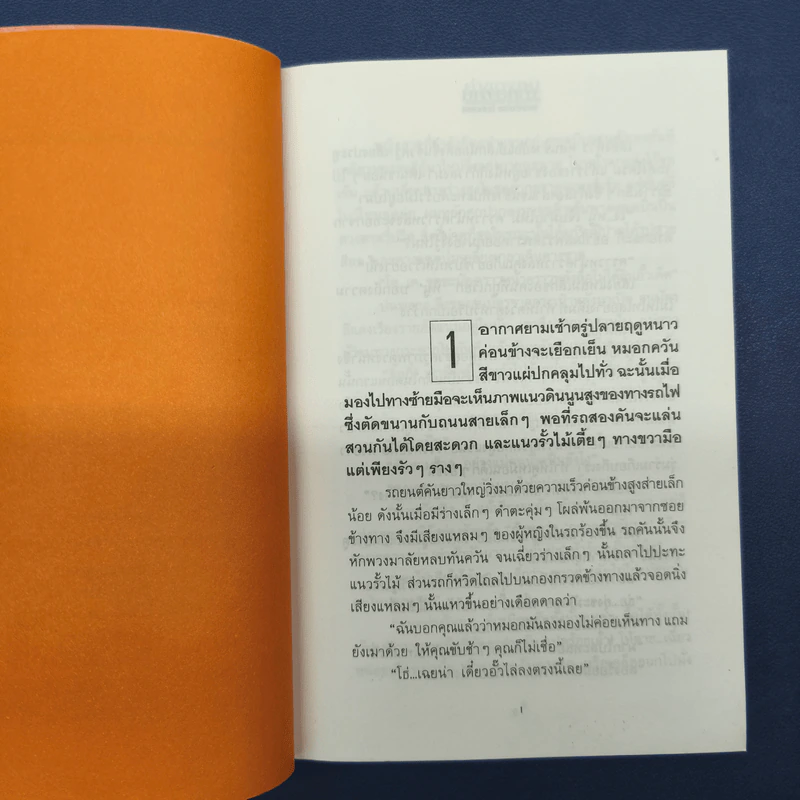 1
อากาศยามเช้าตรู่ปลายฤดูหนาว
ค่อนข้างจะเยือกเย็น หมอกควัน
สีขาวแผ่ปกคลุมไปทั่ว ฉะนั้นเมื่อ
มองไปทางซ้ายมือจะเห็นภาพแนวดินนูนสูงของทางรถไฟ
ซึ่งตัดขนานกับถนนสายเล็กๆ พอที่รถสองคันจะแล่น
สวนกันได้โดยสะดวก และแนวรั้วไม้เตี้ยๆ ทางขวามือ
แต่เพียงรัวๆ รางๆ
รถยนต์คันยาวใหญ่วิ่งมาด้วยความเร็วค่อนข้างสูงส่ายเล็ก
น้อย ดังนั้นเมื่อมีร่างเล็กๆ ดำตะคุ่มๆ โผล่พ้นออกมาจากซอย
ข้างทาง จึงมีเสียงแหลมๆ ของผู้หญิงในรถร้องขึ้น รถคันนั้นจึง
หักพวงมาลัยหลบทันควัน จนเฉี่ยวร่างเล็กๆ นั้นถลาไปปะทะ
แนวรั้วไม้ ส่วนรถก็หวิดไถลไปบนกองกรวดข้างทางแล้วจอดนิ่ง
เสียงแหลมๆ นั้นแหวขึ้นอย่างเดือดดาลว่า
“ฉันบอกคุณแล้วว่าหมอกมันลงมองไม่ค่อยเห็นทาง แถม
ยังเมาด้วย ให้คุณขับช้าๆ คุณก็ไม่เชื่อ”
“โธ่...เฉยน่า เดี๋ยวอั๊วไล่ลงตรงนี้เลย”
1